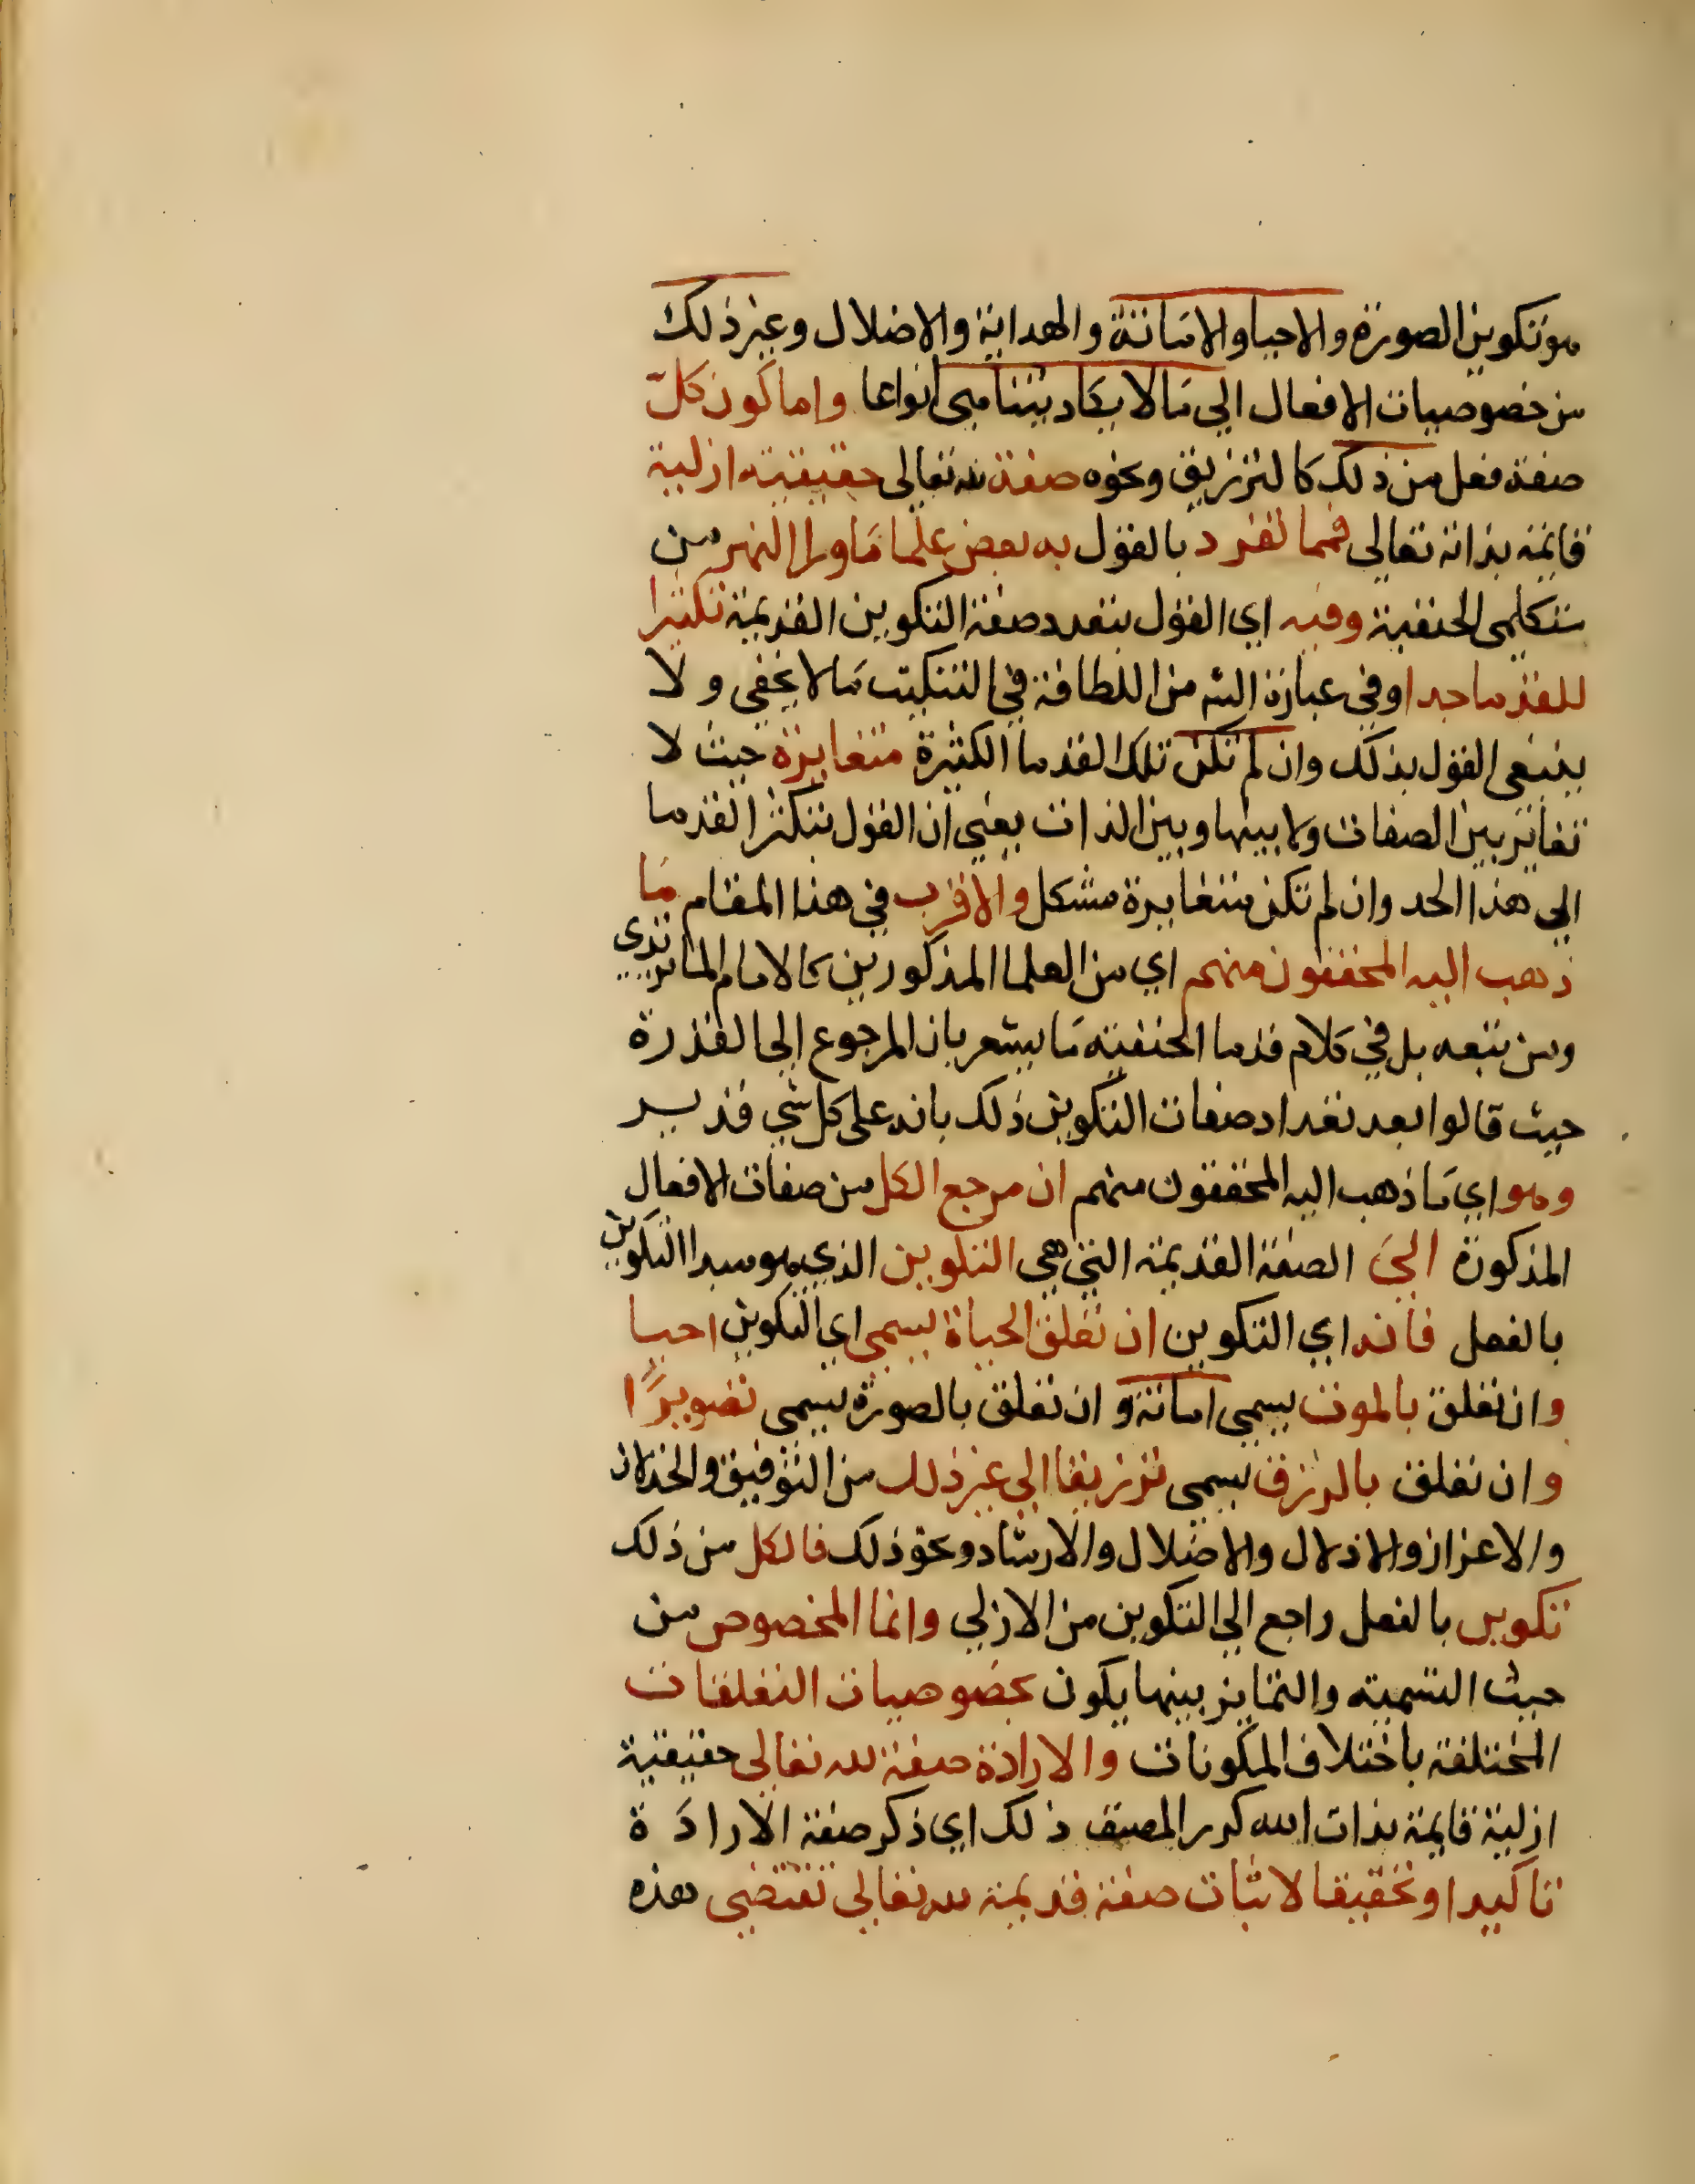 هو تكوين الصورة والاحيا والاماتة والهداية والاضلال وغير ذلك
من خصوصيات الافعال الي مالا يكاد يتناهي انواعا واما كون كلّ
صفة فعل من ذلك كالترزيق ونحوه صفة لله تعالى حقيقية ازلية
قايمة بذاته تعالي فمما تفرد بالقول به بعض علما ماورا النهر من
متكلمي الحنفية وفيه اي القول بتعدد صفة التكوين القديمة تكثيرا
للقدما جدا وفي عبارة الشه من اللطافة في التنكيت مالا يخفي ولا
ينبغي القول بذلك وان لم تكن تلك القدما الكثيرة متغايرة حيث لا
تغاير بين الصفات ولا بينها وبين الذات يعني ان القول بتكثر القدما
الي هذا الحد وان لم تكن متغايرة مشكل والاقرب في هذا المقام ما
ذهب اليه المحققون منهم اي من العلما المذكورين كالامام الماتريدي
ومن تبعه بل في كلام قدما الحنفية ما يشعر بان المرجوع الي القدرة
حيث قالوا بعد تعداد صفات التكوين ذلك بانه على كل شي قدير
وهو اي ما ذهب اليه المحققون منهم ان مرجع الكل من صفات الافعال
المذكورة الي الصفة القديمة التي هي التكوين الذي هو مبدا التكوين
بالفعل فانه اي التكوين ان تعلق الحياة يسمي اي التكوين احيا
وان تعلق بالموت يسمي اماتة و ان تعلق بالصورة يسمى تصويرًا
وان تعلق بالرزق يسمى ترزيقا الي غير ذلك من التوفيق والخذلان
والاعزاز والاذلال والاضلال والارشاد ونحو ذلك فالكل من ذلك
تكوين بالفعل راجع الي التكوين من الازلي وانما المخصوص من
حيث التسمية والتمايز بينها يكون بخصوصيات التعلقات
المختلفة باختلاف المكونات والارادة صفة لله تعالى حقيقية
ازلية قايمة بذات الله كرر المصنف ذلك اي ذكر صفة الارادة
تاكيدا وتحقيقا لاثبات صفة قديمة لله تعالي تقتضي هذه